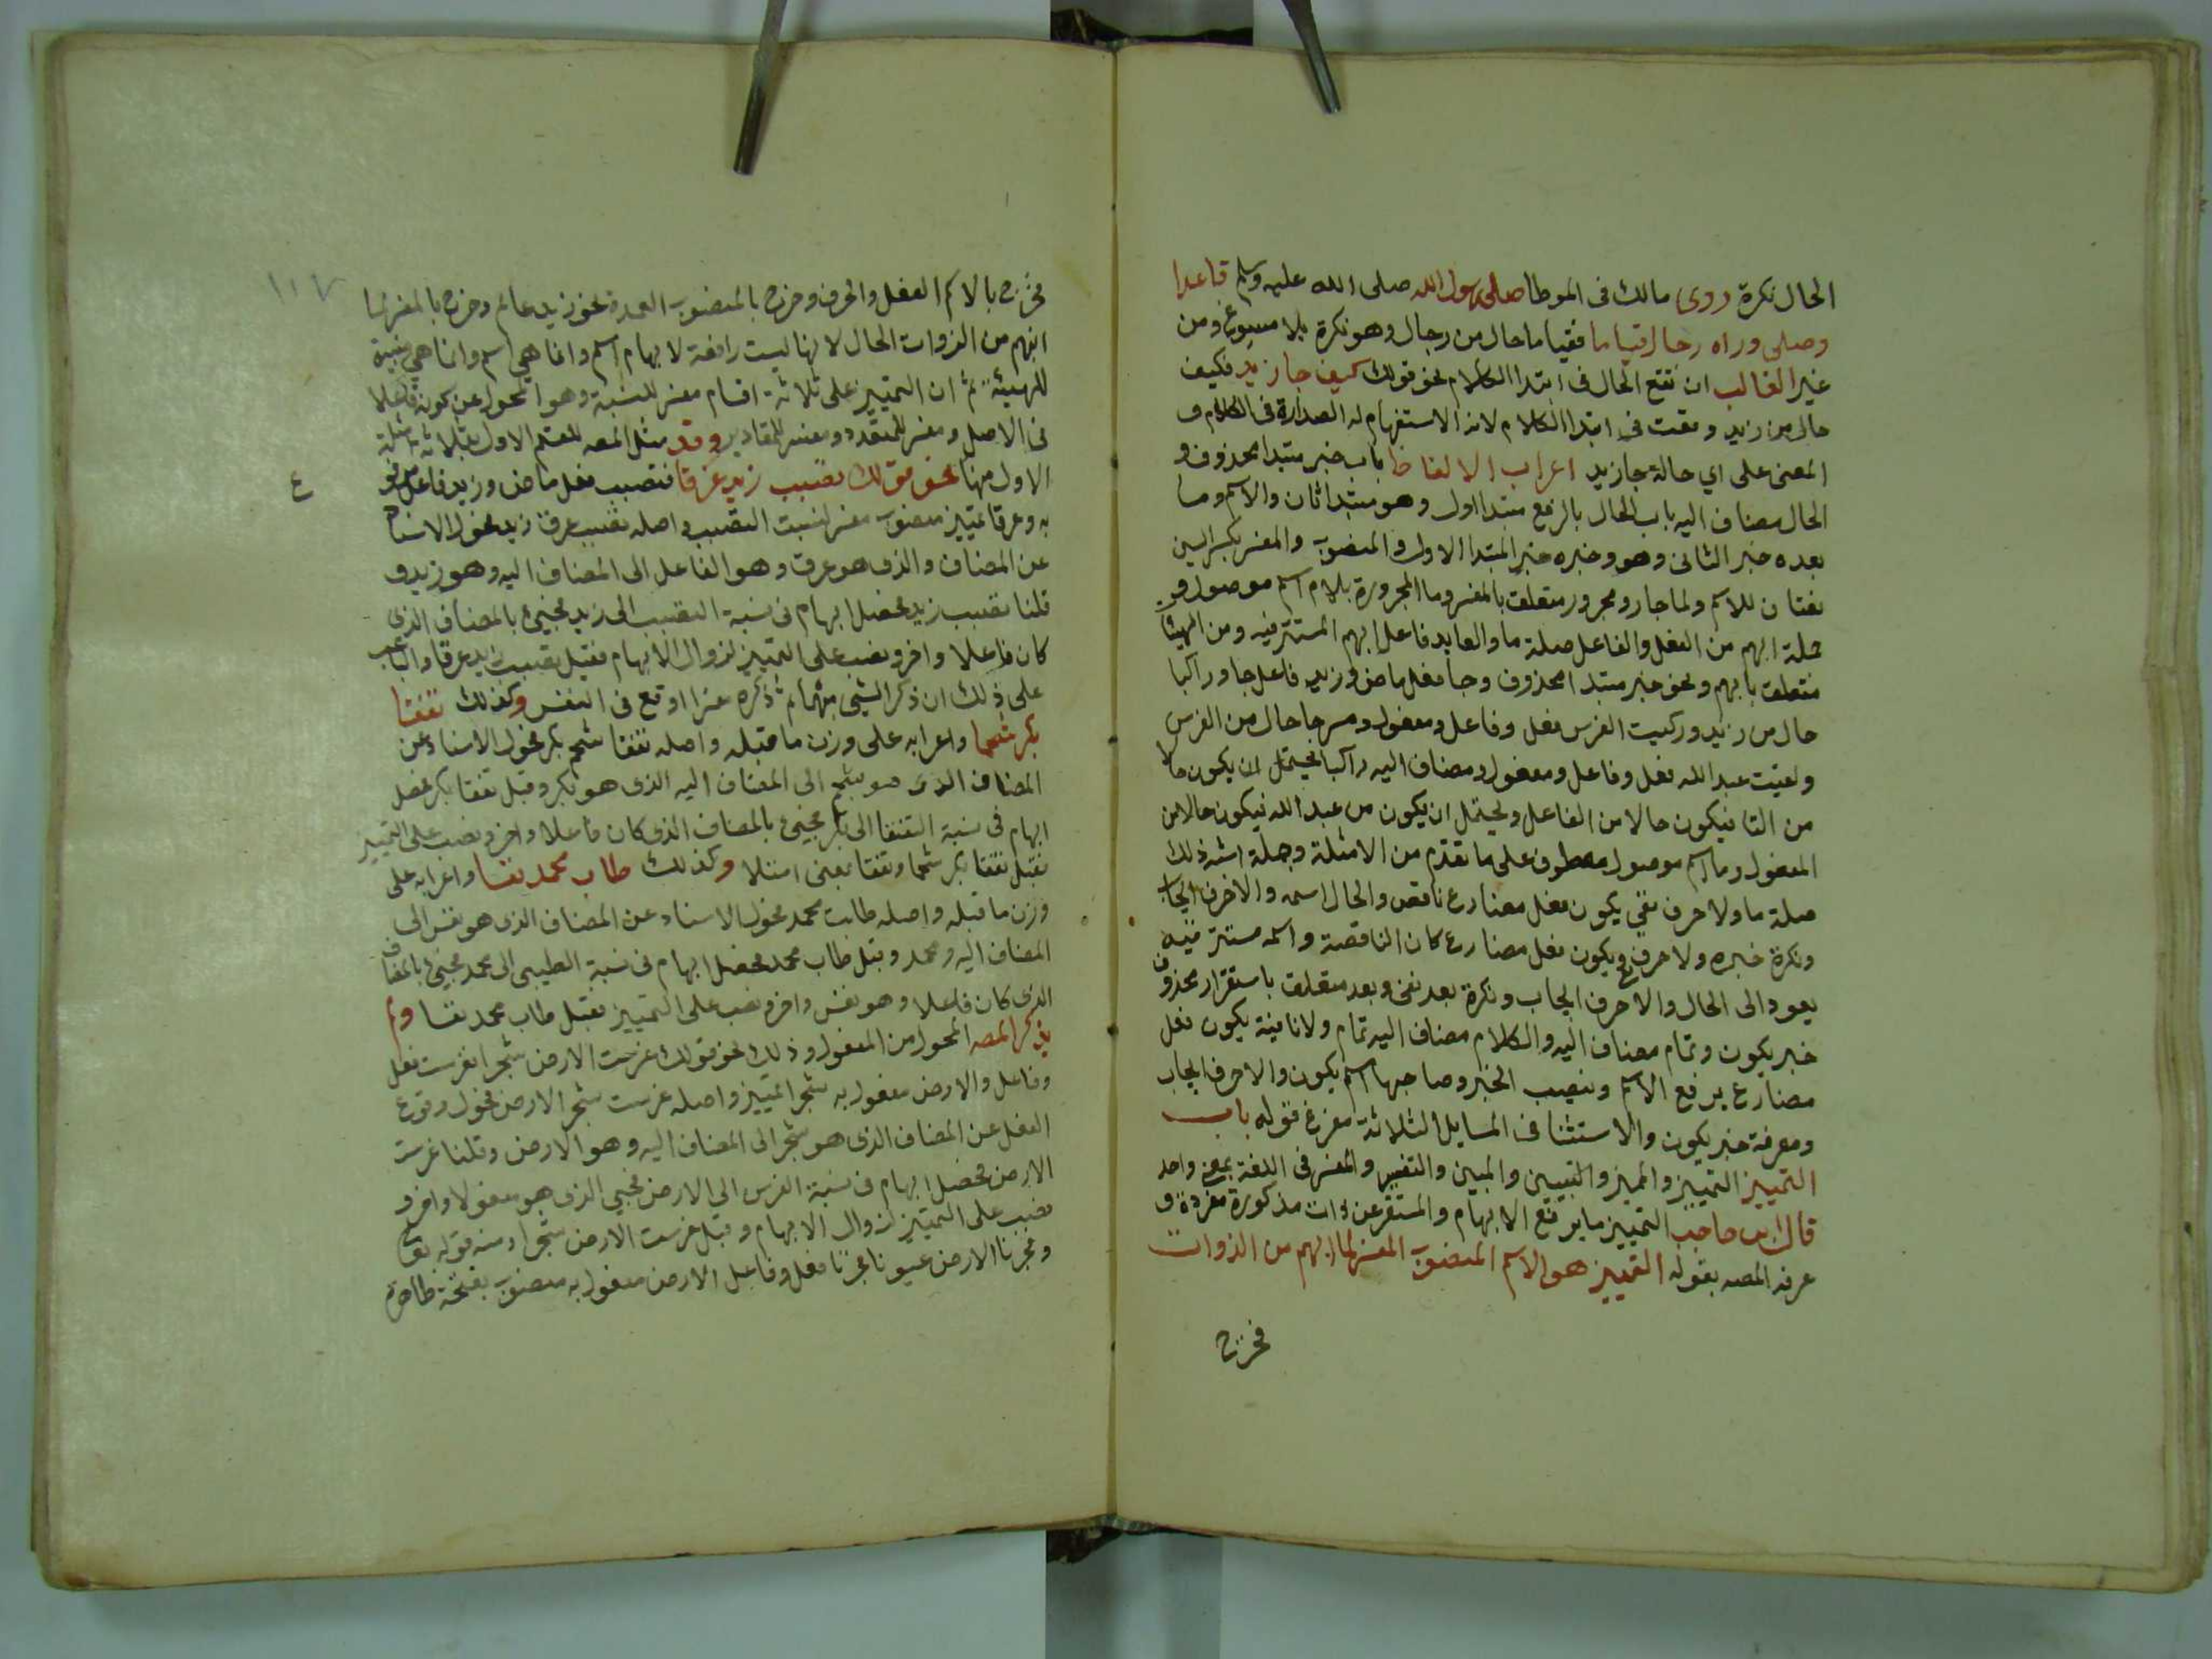 الحال نكرة روى مالك فى الموطا صلى رسول الله صلى الله عليه وسلم قاعدا
وصلى وراه رجال قياما فقياما حال من رجال وهو نكرة بلا مسوغ ومن
غير الغالب ان تقع الحال فى ابتدا الكلام نحو قولك كيف جا زيد فكيف
حال من زيد وقعت فى ابتدا الكلام لان الاستفهام له الصدارة فى الكلام و
المعنى على اي حالة جا زيد اعراب الالفاظ باب خبر مبتدا محذوف و
الحال مضاف اليه باب الحال بالرفع مبتدا اول وهو مبتدا ثان والاسم وما
بعده خبر الثانى وهو وخبره خبر المبتدا الاول والمنصوب والمفسر بكسر السين
نعتان للاسم ولما جار ومجرور متعلق بالمفسر وما المجرورة بلام اسم موصول و
جملة انبهم من الفعل والفاعل صلة ما والعايد فاعل انبهم المستتر فيه ومن الهيئات
متعلق بانبهم ونحو خبر مبتدا محذوف وجا فعل ماض وزيد فاعل جا وراكبا
حال من زيد وركبت الفرس فعل وفاعل ومفعول ومسرجا حال من الفرس
ولقيت عبد الله فعل وفاعل ومفعول ومضاف اليه راكبا يحتمل ان يكون حالا
من التا فيكون حالا من الفاعل ويحتمل ان يكون من عبد الله فيكون حالا من
المفعول وما اسم موصول معطوف على ما تقدم من الامثلة وجملة اشبه ذلك
صلة ما ولا حرف نفي يكون فعل مضارع ناقص والحال اسمه والا حرف ايجاب
ونكرة خبره ولا حرف نفي ويكون فعل مضارع كان الناقصة واسمه مستتر فيه
يعود الى الحال والا حرف ايجاب ونكرة بعد نفى وبعد متعلق باستقرار محذوف
خبر يكون وتمام مضاف اليه والكلام مضاف اليه تمام ولا نافية يكون فعل
مضارع يرفع الاسم وينصب الخبر وصاحبها اسم يكون والا حرف ايجاب
ومعرفة خبر يكون والاستثنا فى المسايل الثلاثة مفرغ قوله باب
التمييز التمييز والمميز والتبيين والمبين والتفسير والمفسر فى اللغة بمعنى واحد
قال ابن حاجب التمييز ما يرفع الابهام والمستقر عن ذات مذكورة مفردة و
عرفه المصه بقوله التمييز هو الاسم المنصوب المفسر لما انبهم من الذوات
فخرج
١٠٧
فخرج بالاسم الفعل والحرف وخرج بالمنصوب العمدة نحو زيد عالم وخرج بالمفسر لما
انبهم من الذوات الحال لانها ليست رافعة لابهام اسم وانما هي اسم وانما هي مبينة
للهيئة ثم ان التمييز على ثلاثة اقسام مفسر للنسبة وهو المحول عن كونه فاعلا
فى الاصل ومفسر للعدد ومفسر للمقادير وقد مثل المصه للقسم الاول بثلاثة امثلة
الاول منها نحو قولك تصبب زيد عرقا فتصبب فعل ماض وزيد فاعل مرفوع
به وعرقا تمييز منصوب مفسر لنسبت التصبب واصله تصبب عرق زيد فحول الاسناد
عن المضاف والذى هو عرق وهو الفاعل الى المضاف اليه وهو زيد و
قلنا تصبب زيد فحصل ابهام فى نسبة التصبب الى زيد فجيئ بالمضاف الذى
كان فاعلا واخر ونصب على التمييز لزوال الابهام فقيل تصبب زيد عرقا والباعث
على ذلك ان ذكر الشئ مبهما ثم ذكره مفسرا اوقع فى النفس وكذلك تفقا
بكر شحما واعرابه على وزن ما قبله واصله تفقا شحم بكر فحول الاسناد عن
المضاف الذى هو شحم الى المضاف اليه الذى هو بكر وقيل تفقا بكر فحصل
ابهام فى نسبة التفقا الى بكر فجيئ بالمضاف الذى كان فاعلا واخر ونصب على التمييز
فقيل تفقا بكر شحما وتفقا بمعنى امتلا وكذلك طاب محمد نفسا واعرابه على
وزن ما قبله واصله طابت محمد فحول الاسناد عن المضاف الذى هو نفس الى
المضاف اليه ومحمد وقيل طاب محمد فحصل ابهام فى نسبة الطيب الى محمد فجيئ بالمضاف
الذى كان فاعلا وهو نفس واخر ونصب على التمييز فقيل طاب محمد نفسا ولم
يذكر المصه المحول من المفعول وذلك نحو قولك غرست الارض شجرا فغرست فعل
وفاعل والارض مفعول به شجرا تمييز واصله غرست شجر الارض فحول وقوع
الفعل عن المضاف الذى هو شجر الى المضاف اليه وهو الارض وقلنا غرست
الارض فحصل ابهام فى نسبة الغرس الى الارض فجيئ الذى هو مفعولا واخر و
نصب على التمييز لزوال الابهام وقيل غرست الارض شجرا ومنه قوله تعالى
وفجرنا الارض عيونا فجرنا فعل وفاعل الارض مفعول به منصوب بفتحة ظاهرة